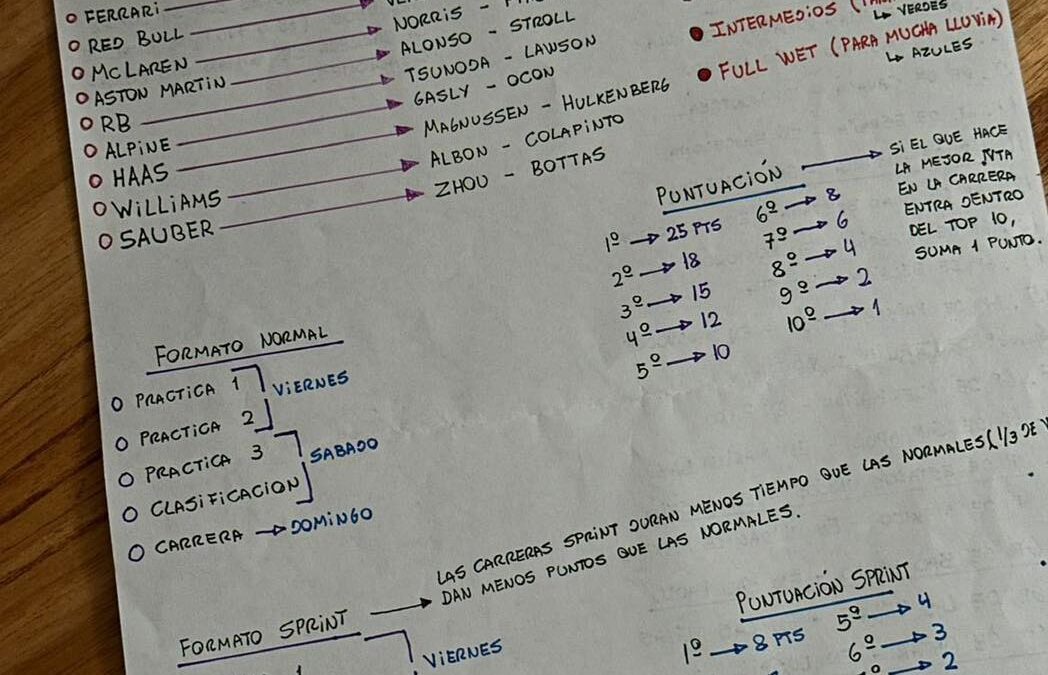 FERRARI
RED BULL
McLAREN
NORRIS -
ASTON MARTIN
ALONSO - STROLL
RB
TSUNODA - LAWSON
ALPINE
GASLY - OCON
HAAS
MAGNUSSEN - HULKENBERG
WILLIAMS
ALBON - COLAPINTO
SAUBER
ZHOU - BOTTAS
INTERMEDIOS
VERDES
FULL WET (PARA MUCHA LLUVIA)
AZULES
PUNTUACIÓN
1º → 25 PTS
2º → 18
3º → 15
4º → 12
5º → 10
6º → 8
7º → 6
8º → 4
9º → 2
10º → 1
SI EL QUE HACE
LA MEJOR VTA
EN LA CARRERA
ENTRA DENTRO
DEL TOP 10,
SUMA 1 PUNTO.
FORMATO NORMAL
PRACTICA 1
VIERNES
PRACTICA 2
PRACTICA 3
SABADO
CLASIFICACION
CARRERA → DOMINGO
LAS CARRERAS SPRINT DURAN MENOS TIEMPO QUE LAS NORMALES (1/3 DE
DAN MENOS PUNTOS QUE LAS NORMALES.
FORMATO SPRINT
VIERNES
1
PUNTUACIÓN SPRINT
1º → 8 PTS
5º → 4
6º → 3
→ 2